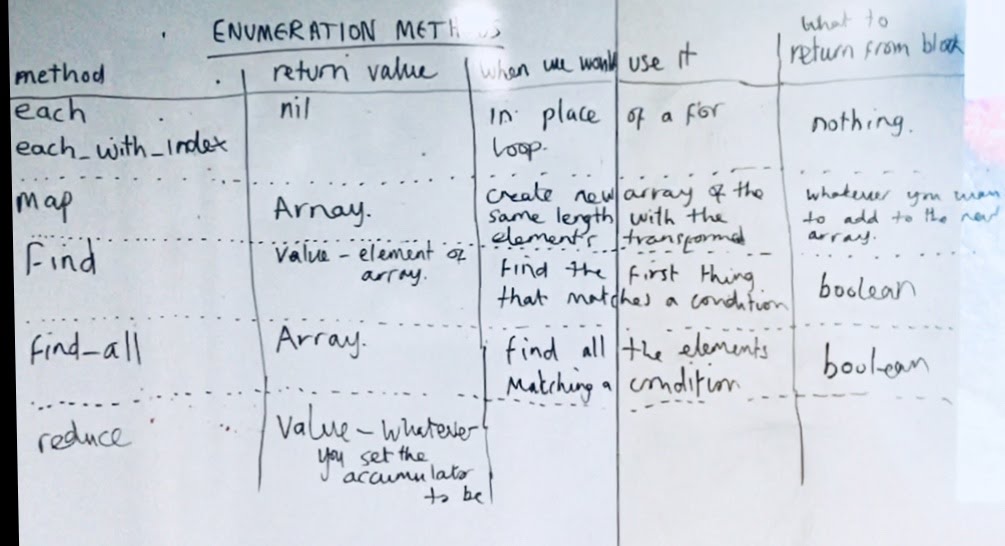 ENUMERATION METHODS
method return value when we would use it what to return from block
each
each_with_index
nil
in place of a for
loop.
nothing.
map
Array.
create new array of the
same length with the
elements transformed
whatever you want
to add to the new
array.
Find
Value - element of
array.
find the first thing
that matches a condition
boolean
find_all
Array.
find all the elements
Matching a condition
boolean
reduce
Value - Whatever
you set the
accumulator
to be